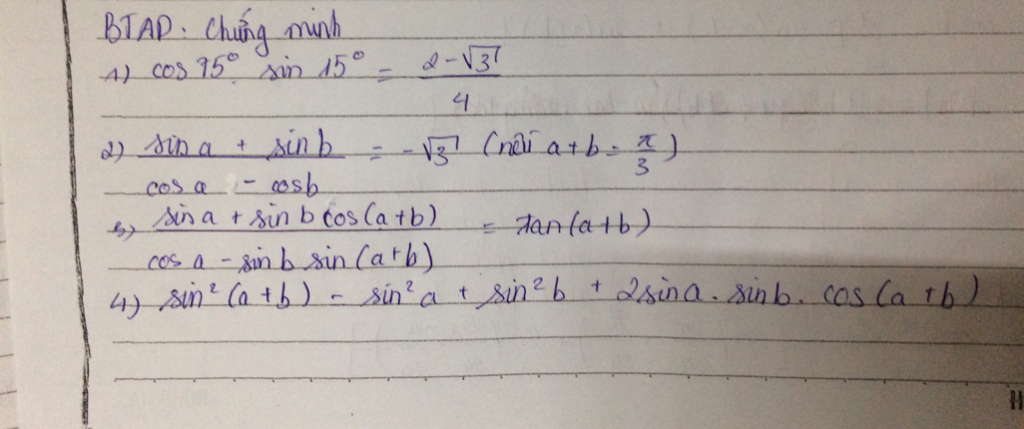 BTAD: Chứng minh
1) cos 75°. sin 15° = (2 - √3)/4
2) (sin a + sin b)/(cos a - cos b) = -√3 (nếu a + b = π/3)
3) (sin a + sin b cos(a+b))/(cos a - sin b sin(a+b)) = tan(a+b)
4) sin²(a+b) = sin²a + sin²b + 2sina. sinb. cos(a+b)